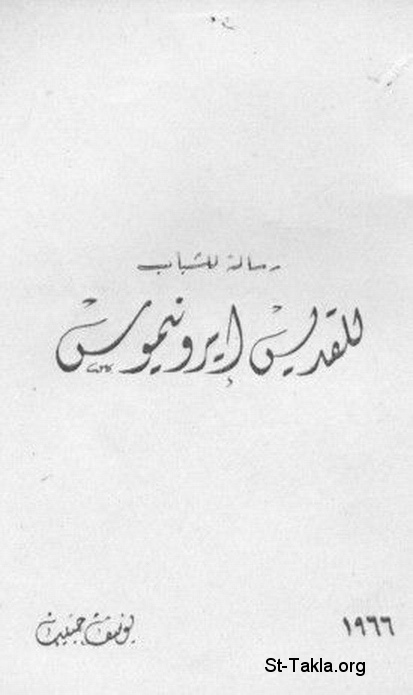 رسالة للشباب
للقديس إيرونيموس
١٩٦٦ يوسف حبيب
St-Takla.org